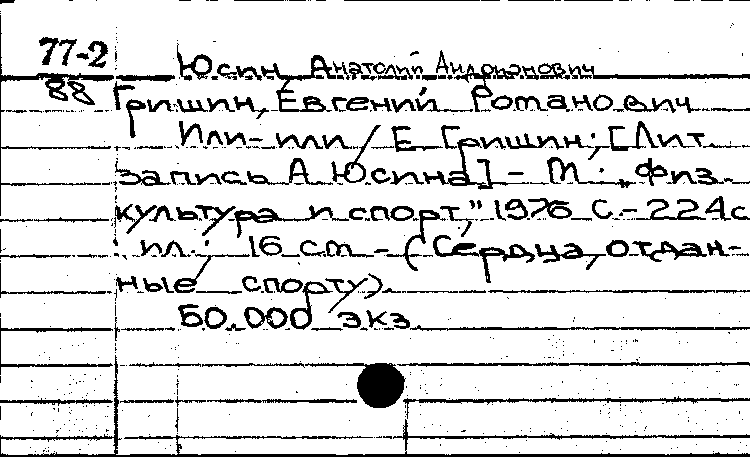 77-2
88
Юсин, Анатолий Андрианович
Гришин, Евгений Романович
Или-или / Е. Гришин; [Лит.
запись А. Юсина] - М.: „Физ.
культура и спорт," 1976 С.- 224с
: ил.; 16 см - (Сердца, отдан-
ные спорту).
50.000 экз.